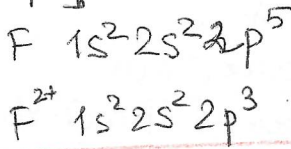 F 1s² 2s² 2p⁵
F²⁺ 1s² 2s² 2p³